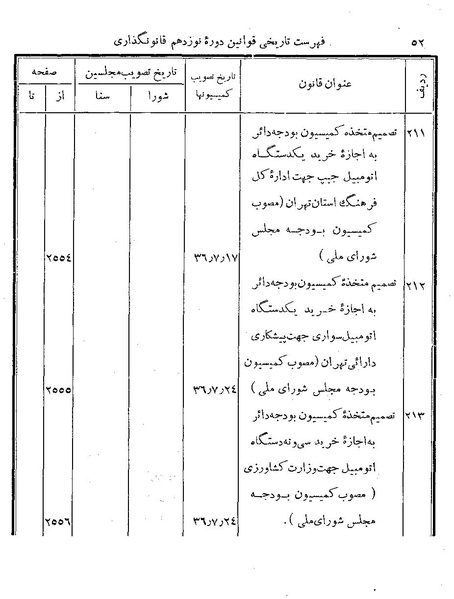 ۵۲
فهرست تاریخی قوانین دورهٔ نوزدهم قانونگذاری
ردیف
عنوان قانون
تاریخ تصویب کمیسیونها
تاریخ تصویب مجلسین
شورا
سنا
صفحه
از
تا
۲۱۱
تصمیم متخذه کمیسیون بودجه دائر
به اجازهٔ خرید یکدستگاه
اتومبیل جیپ جهت ادارهٔ کل
فرهنگ استان تهران (مصوب
کمیسیون بودجه مجلس
شورای ملی)
۳۶٫۷٫۱۷
۲۵۵۴
۲۱۲
تصمیم متخذهٔ کمیسیون بودجه دائر
به اجازهٔ خرید یکدستگاه
اتومبیل سواری جهت پیشکاری
دارائی تهران (مصوب کمیسیون
بودجه مجلس شورای ملی)
۳۶٫۷٫۲۴
۲۵۵۵
۲۱۳
تصمیم متخذهٔ کمیسیون بودجه دائر
به اجازهٔ خرید سی و نه دستگاه
اتومبیل جهت وزارت کشاورزی
(مصوب کمیسیون بودجه
مجلس شورای ملی).
۳۶٫۷٫۲۴
۲۵۵۶